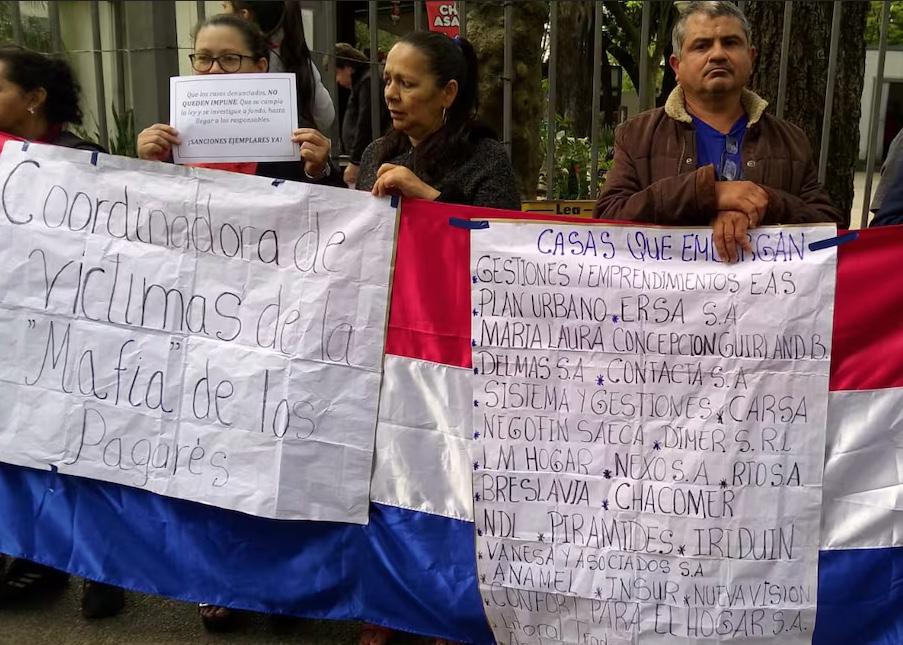 CH
ASA
Que los casos denunciados, NO
QUEDEN IMPUNE. Que se cumpla
la ley y se investigue a fondo, hasta
llegar a los responsables.
¡SANCIONES EJEMPLARES YA!
Lea
Coordinadora de
Víctimas de la
"Mafia" de los
Pagarés
CASAS QUE EMBARGAN
GESTIONES Y EMPRENDIMIENTOS EAS
PLAN URBANO * ERSA S.A
* MARIA LAURA CONCEPCION GUIRLAND B.
DELMAS S.A * CONTACTA S.A
* SISTEMA Y GESTIONES * CARSA
* NEGOFIN SAECA * DIMER S.R.L
* LM HOGAR * NEXO S.A * RTO S.A
* BRESLAVIA * CHACOMER
NDL * PIRAMIDES * IRIDUIN
* VANESA Y ASOCIADOS S.A
* ANAMEI * INSUR * NUEVA VISION
* CONFORT PARA EL HOGAR S.A.